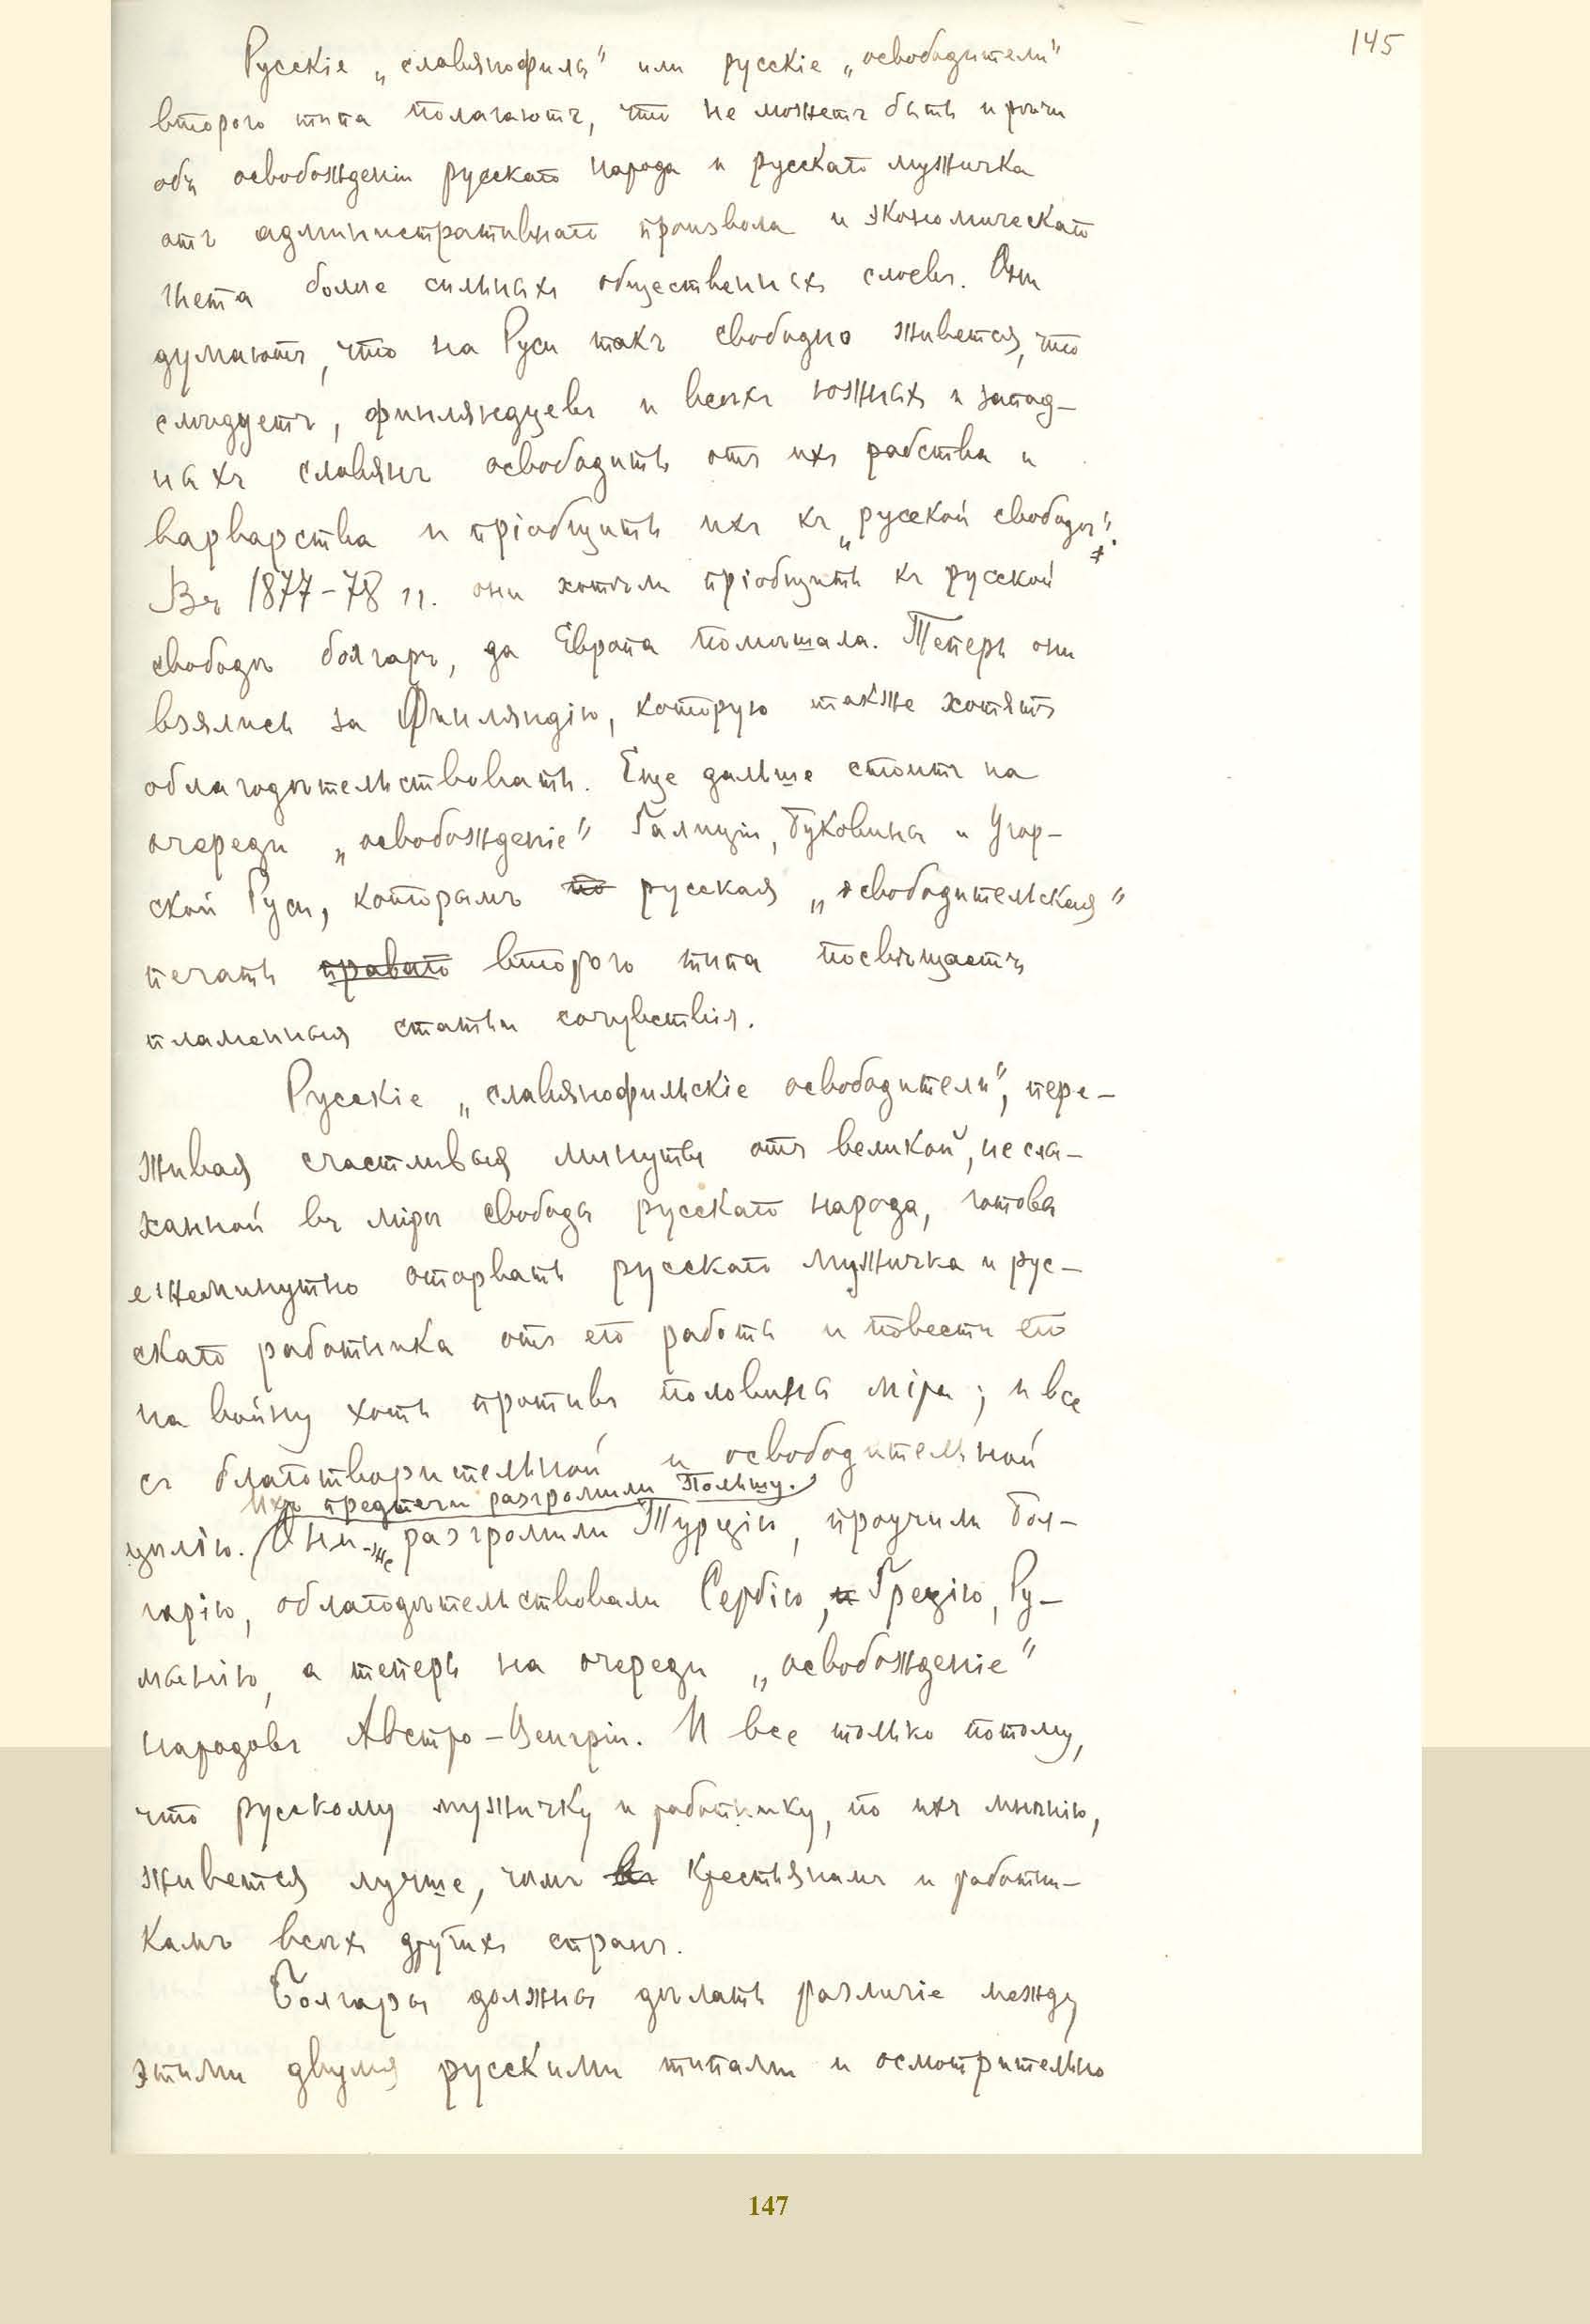 145
Русскіе „славянофилы" или русскіе „освободители"
второго типа полагаютъ, что не можетъ быть и рѣчи
объ освобожденіи русскаго народа и русскаго мужичка
отъ административнаго произвола и экономическаго
гнета болѣе сильныхъ общественныхъ слоевъ. Они
думаютъ, что на Руси такъ свободно живется, что
слѣдуетъ, финляндцевъ и всѣхъ южныхъ и запад-
ныхъ славянъ освободить отъ ихъ рабства и
варварства и пріобщить ихъ къ „русской свободѣ".
Въ 1877-78 гг. они хотѣли пріобщить къ русской
свободѣ болгаръ, да Европа помѣшала. Теперь они
взялись за Финляндію, которую также хотятъ
облагодѣтельствовать. Еще дальше стоитъ на
очереди „освобожденіе" Галиціи, Буковины и Угор-
ской Руси, которымъ по русская „освободительская"
печать праваго второго типа посвящаетъ
пламенныя статьи сочувствія.
Русскіе „славянофильскіе освободители", пере-
живая счастливыя минуты отъ великой, неслы-
ханной въ мірѣ свободы русскаго народа, готовы
ежеминутно оторвать русскаго мужичка и рус-
скаго работника отъ его работы и повести его
на войну хоть противъ половины міра; и все
съ благотворительной и освободительной
Ихъ предтечи разгромили Польшу.
цѣлію. Они-же разгромили Турцію, проучили Бол-
гарію, облагодѣтельствовали Сербію, и Грецію, Ру-
мынію, а теперь на очереди „освобожденіе"
народовъ Австро-Венгріи. И все только потому,
что русскому мужичку и работнику, по ихъ мнѣнію,
живется лучше, чѣмъ въ крестьянамъ и работни-
камъ всѣхъ другихъ странъ.
Болгары должны дѣлать различіе между
этими двумя русскими типами и осмотрительно
147